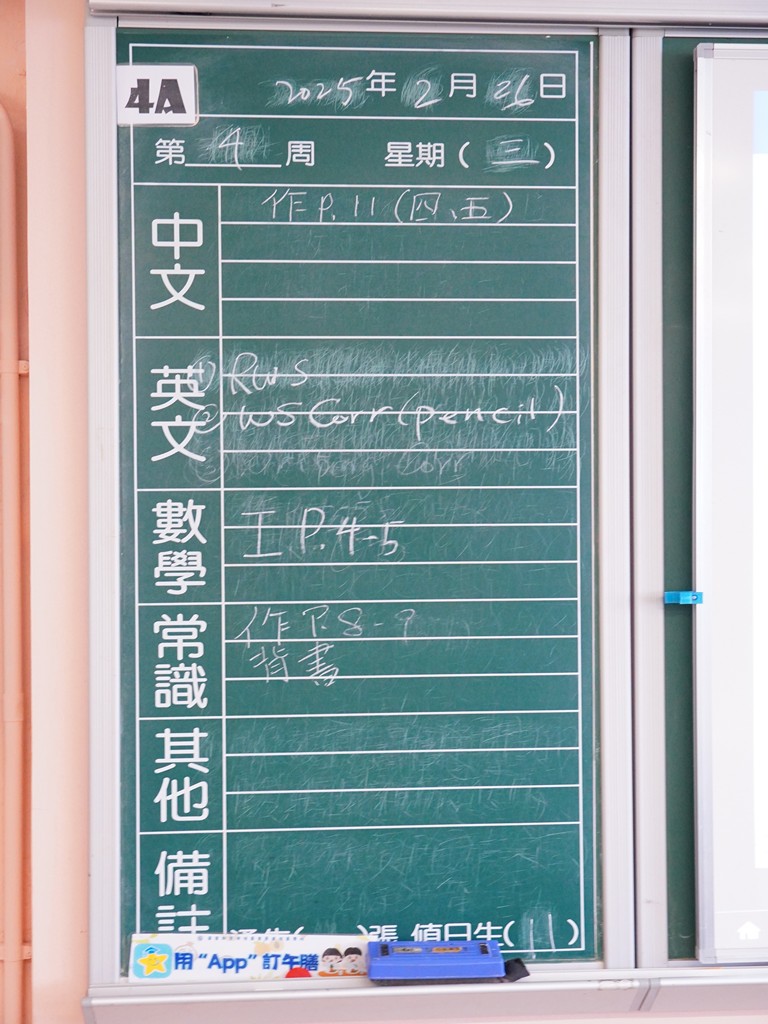 4A
2025年2月26日
第4周 星期(三)
中文
作 P.11 (四、五)
英文
① RWS
② WS Corr (pencil)
數學
工 P.4-5
常識
作 P.8-9
背書
其他
備註
張 值日生(11)
用“App”訂午膳